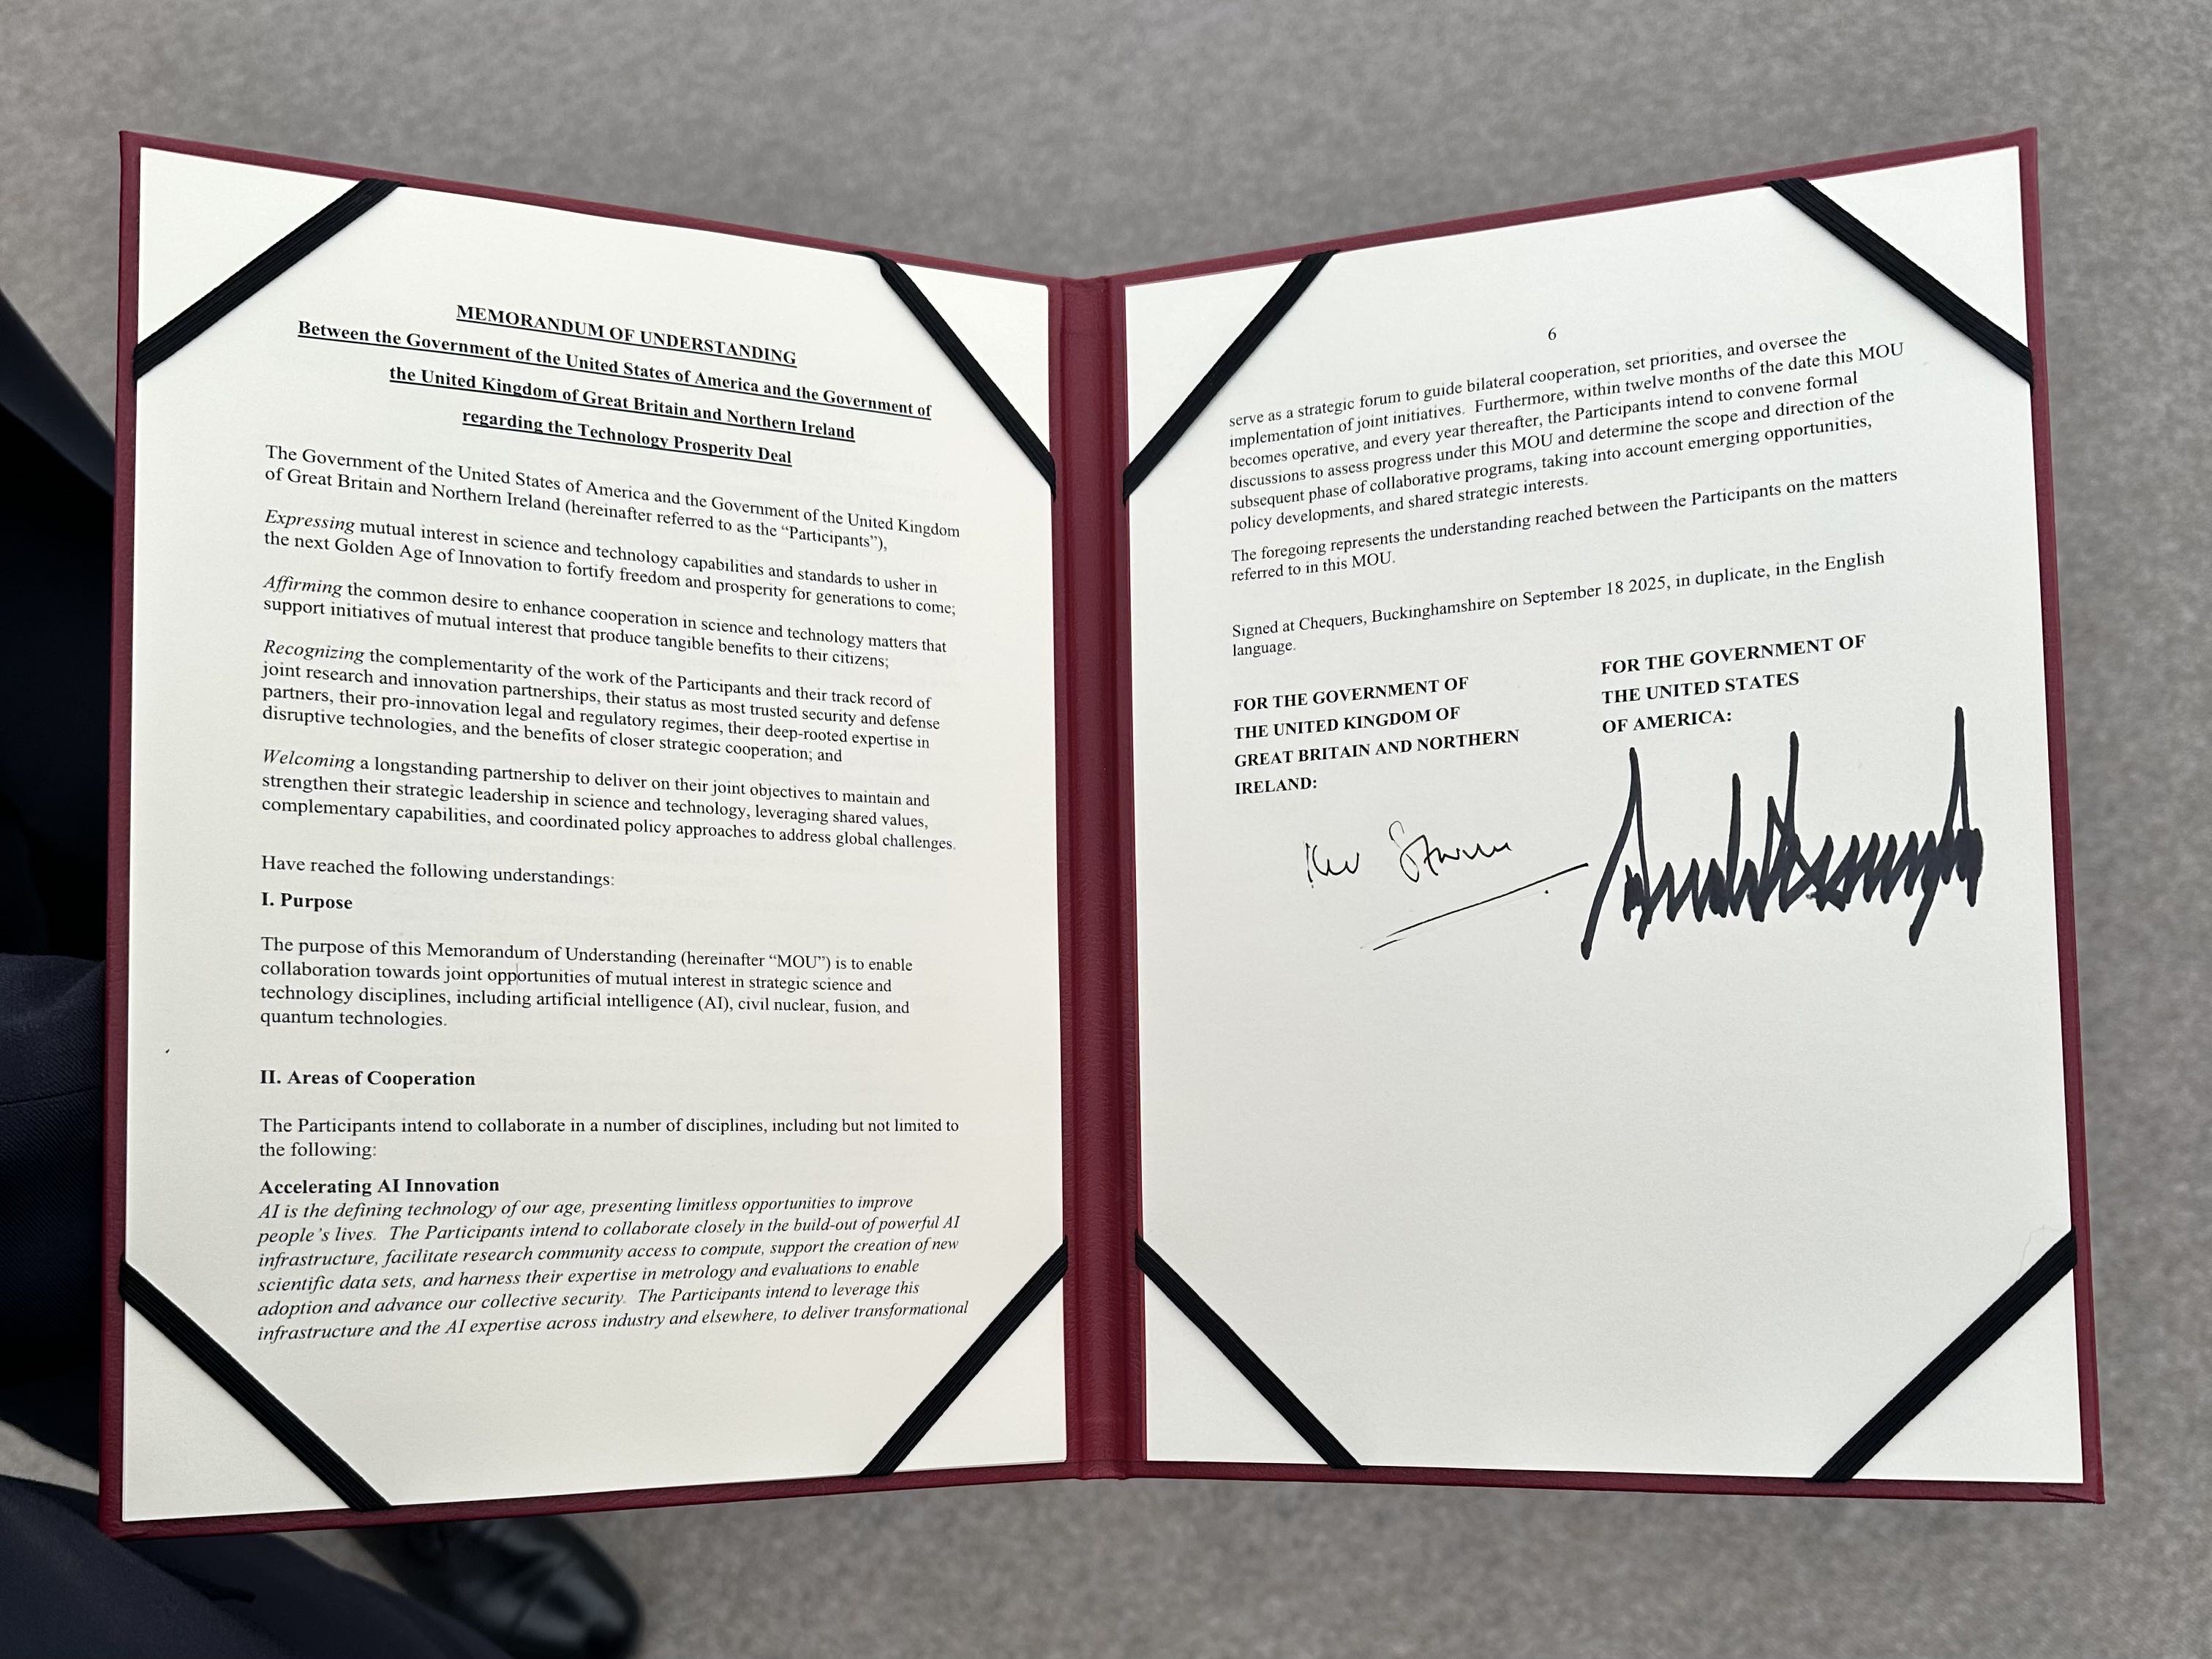 MEMORANDUM OF UNDERSTANDING
Between the Government of the United States of America and the Government of
the United Kingdom of Great Britain and Northern Ireland
regarding the Technology Prosperity Deal
The Government of the United States of America and the Government of the United Kingdom
of Great Britain and Northern Ireland (hereinafter referred to as the “Participants”),
Expressing mutual interest in science and technology capabilities and standards to usher in
the next Golden Age of Innovation to fortify freedom and prosperity for generations to come;
Affirming the common desire to enhance cooperation in science and technology matters that
support initiatives of mutual interest that produce tangible benefits to their citizens;
Recognizing the complementarity of the work of the Participants and their track record of
joint research and innovation partnerships, their status as most trusted security and defense
partners, their pro-innovation legal and regulatory regimes, their deep-rooted expertise in
disruptive technologies, and the benefits of closer strategic cooperation; and
Welcoming a longstanding partnership to deliver on their joint objectives to maintain and
strengthen their strategic leadership in science and technology, leveraging shared values,
complementary capabilities, and coordinated policy approaches to address global challenges.
Have reached the following understandings:
I. Purpose
The purpose of this Memorandum of Understanding (hereinafter “MOU”) is to enable
collaboration towards joint opportunities of mutual interest in strategic science and
technology disciplines, including artificial intelligence (AI), civil nuclear, fusion, and
quantum technologies.
II. Areas of Cooperation
The Participants intend to collaborate in a number of disciplines, including but not limited to
the following:
Accelerating AI Innovation
AI is the defining technology of our age, presenting limitless opportunities to improve
people’s lives. The Participants intend to collaborate closely in the build-out of powerful AI
infrastructure, facilitate research community access to compute, support the creation of new
scientific data sets, and harness their expertise in metrology and evaluations to enable
adoption and advance our collective security. The Participants intend to leverage this
infrastructure and the AI expertise across industry and elsewhere, to deliver transformational
6
serve as a strategic forum to guide bilateral cooperation, set priorities, and oversee the
implementation of joint initiatives. Furthermore, within twelve months of the date this MOU
becomes operative, and every year thereafter, the Participants intend to convene formal
discussions to assess progress under this MOU and determine the scope and direction of the
subsequent phase of collaborative programs, taking into account emerging opportunities,
policy developments, and shared strategic interests.
The foregoing represents the understanding reached between the Participants on the matters
referred to in this MOU.
Signed at Chequers, Buckinghamshire on September 18 2025, in duplicate, in the English
language.
FOR THE GOVERNMENT OF
THE UNITED KINGDOM OF
GREAT BRITAIN AND NORTHERN
IRELAND:
FOR THE GOVERNMENT OF
THE UNITED STATES
OF AMERICA: